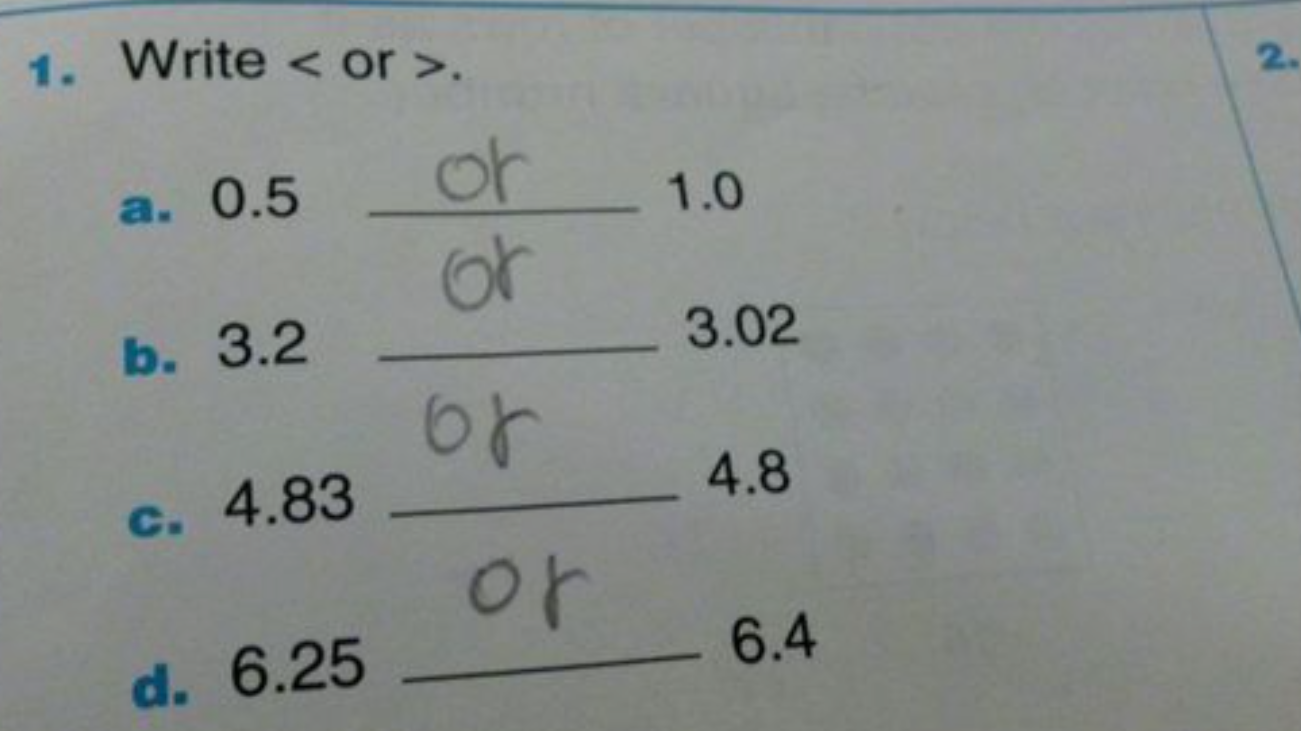 1. Write < or >.
2.
a. 0.5 or 1.0
b. 3.2 or 3.02
c. 4.83 or 4.8
d. 6.25 or 6.4